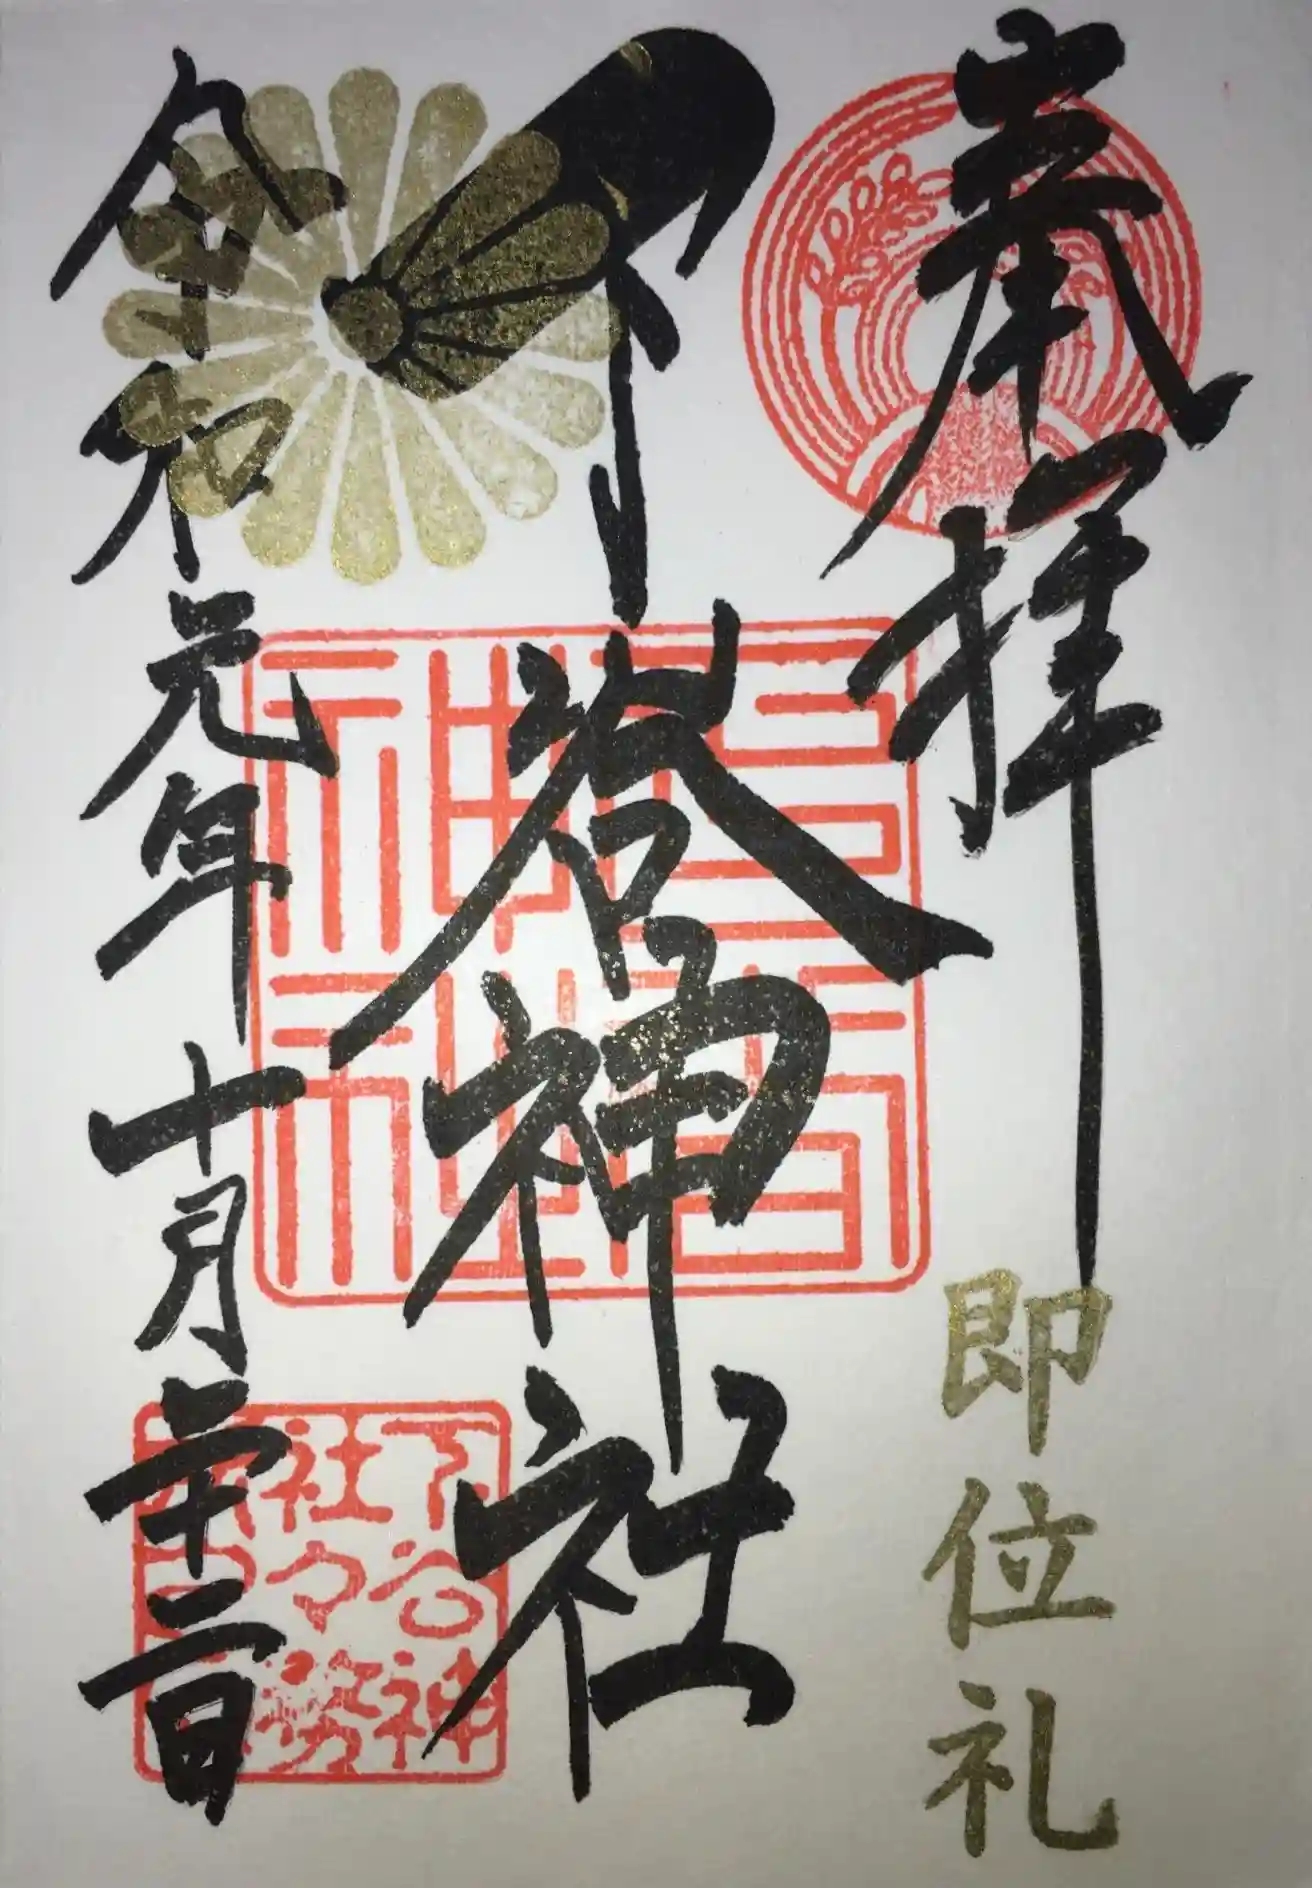 奉拝
即位礼
下谷神社
下谷神社
下谷神社社務所印
令和元年十月二十二日